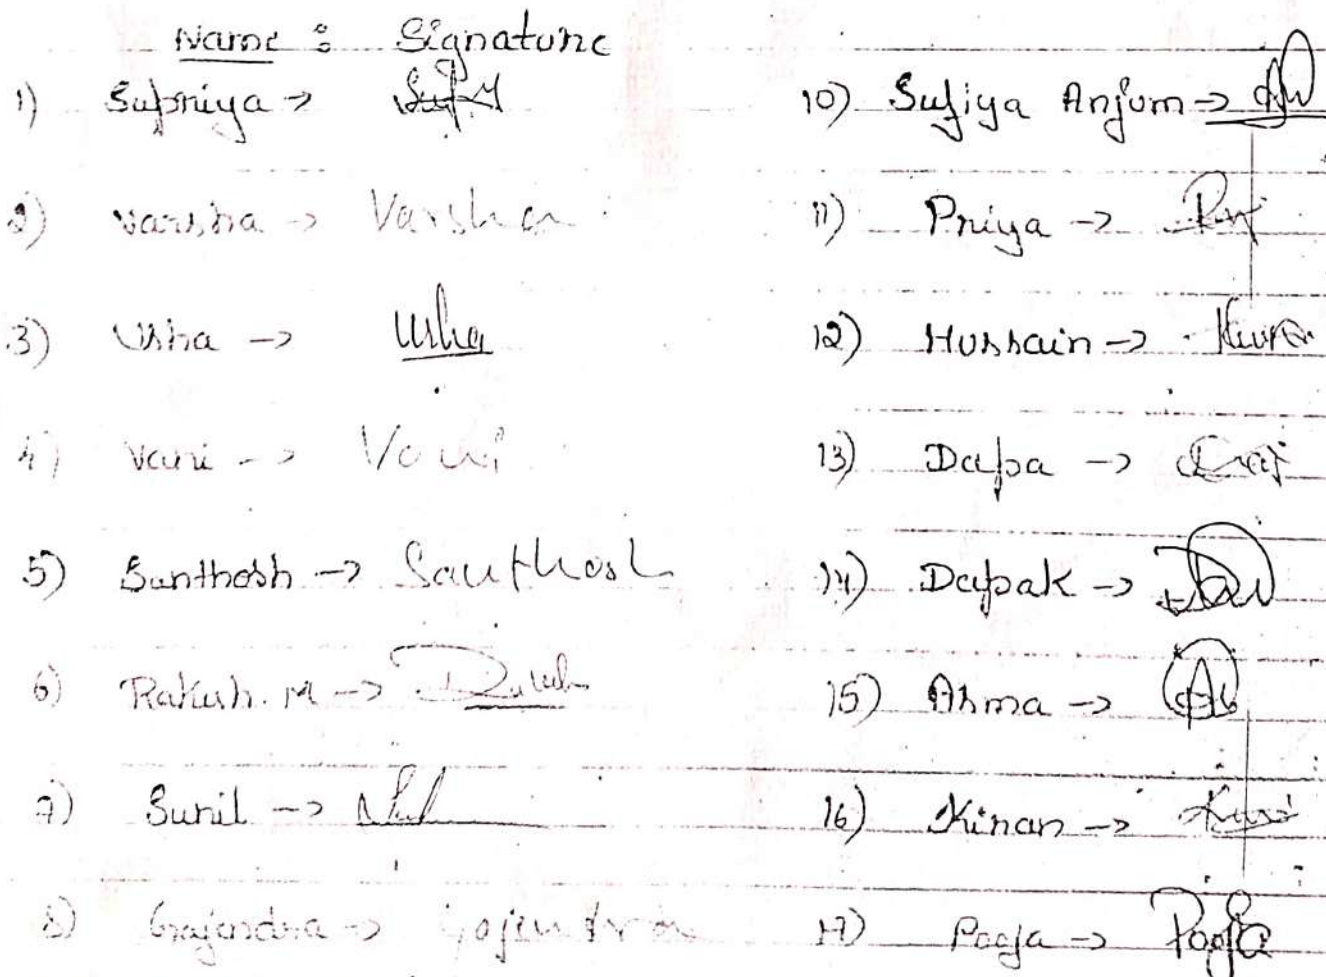 Name : Signature
1) Supriya →
2) Varsha → Varsha
3) Usha → Usha
4) Vani → Vani
5) Santhosh → Santhosh
6) Rakesh. M →
7) Sunil →
8) Gajendra → Gajendra
10) Sufiya Anjum →
11) Priya →
12) Hussain →
13) Dapa →
14) Dapak →
15) Asma →
16) Kiran →
17) Pooja → Pooja